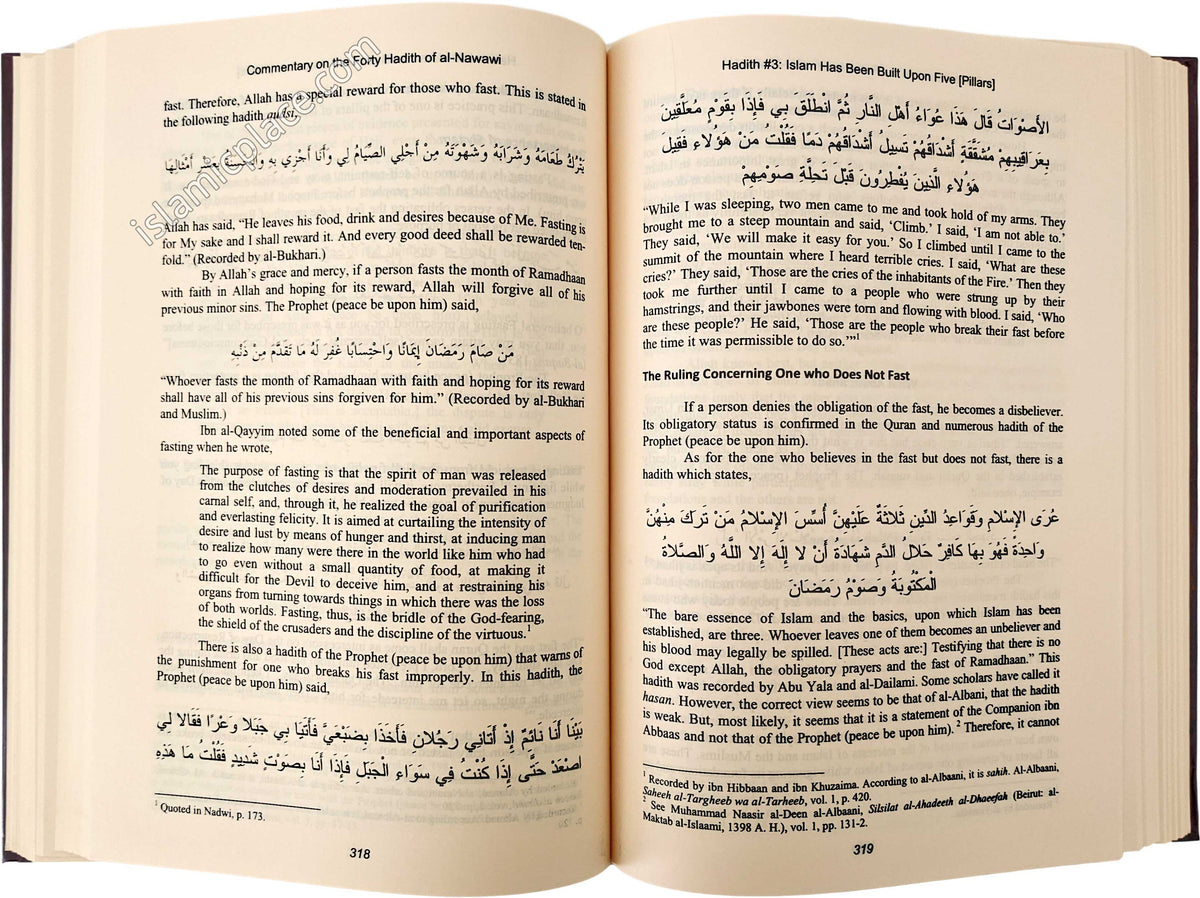 Commentary on the Forty Hadith of al-Nawawi
fast. Therefore, Allah has a special reward for those who fast. This is stated in
the following hadith qudsi,
يَتْرُكُ طَعَامَهُ وَشَرَابَهُ وَشَهْوَتَهُ مِنْ أَجْلِي الصِّيَامُ لِي وَأَنَا أَجْزِي بِهِ وَالْحَسَنَةُ بِعَشْرِ أَمْثَالِهَا
Allah has said, “He leaves his food, drink and desires because of Me. Fasting is
for My sake and I shall reward it. And every good deed shall be rewarded ten-
fold.” (Recorded by al-Bukhari.)
By Allah’s grace and mercy, if a person fasts the month of Ramadhaan
with faith in Allah and hoping for its reward, Allah will forgive all of his
previous minor sins. The Prophet (peace be upon him) said,
مَنْ صَامَ رَمَضَانَ إِيمَانًا وَاحْتِسَابًا غُفِرَ لَهُ مَا تَقَدَّمَ مِنْ ذَنْبِهِ
“Whoever fasts the month of Ramadhaan with faith and hoping for its reward
shall have all of his previous sins forgiven for him.” (Recorded by al-Bukhari
and Muslim.)
Ibn al-Qayyim noted some of the beneficial and important aspects of
fasting when he wrote,
The purpose of fasting is that the spirit of man was released
from the clutches of desires and moderation prevailed in his
carnal self, and, through it, he realized the goal of purification
and everlasting felicity. It is aimed at curtailing the intensity of
desire and lust by means of hunger and thirst, at inducing man
to realize how many were there in the world like him who had
to go even without a small quantity of food, at making it
difficult for the Devil to deceive him, and at restraining his
organs from turning towards things in which there was the loss
of both worlds. Fasting, thus, is the bridle of the God-fearing,
the shield of the crusaders and the discipline of the virtuous.¹
There is also a hadith of the Prophet (peace be upon him) that warns of
the punishment for one who breaks his fast improperly. In this hadith, the
Prophet (peace be upon him) said,
بَيْنَا أَنَا نَائِمٌ إِذْ أَتَانِي رَجُلَانِ فَأَخَذَا بِضَبْعَيَّ فَأَتَيَا بِي جَبَلا وَعْرًا فَقَالا لِي
اصْعَدْ حَتَّى إِذَا كُنْتُ فِي سَوَاءِ الْجَبَلِ فَإِذَا أَنَا بِصَوْتٍ شَدِيدٍ فَقُلْتُ مَا هَذِهِ
¹ Quoted in Nadwi, p. 173.
318
Hadith #3: Islam Has Been Built Upon Five [Pillars]
الأَصْوَاتُ قَالَ هَذَا عُوَاءُ أَهْلِ النَّارِ ثُمَّ انْطَلَقَ بِي فَإِذَا بِقَوْمٍ مُعَلَّقِينَ
بِعَرَاقِيبِهِمْ مُشَقَّقَةٍ أَشْدَاقُهُمْ تَسِيلُ أَشْدَاقُهُمْ دَمًا فَقُلْتُ مَنْ هَؤُلاءِ فَقِيلَ
هَؤُلاءِ الَّذِينَ يُفْطِرُونَ قَبْلَ تَحِلَّةِ صَوْمِهِمْ
“While I was sleeping, two men came to me and took hold of my arms. They
brought me to a steep mountain and said, ‘Climb.’ I said, ‘I am not able to.’
They said, ‘We will make it easy for you.’ So I climbed until I came to the
summit of the mountain where I heard terrible cries. I said, ‘What are these
cries?’ They said, ‘Those are the cries of the inhabitants of the Fire.’ Then they
took me further until I came to a people who were strung up by their
hamstrings, and their jawbones were torn and flowing with blood. I said, ‘Who
are these people?’ He said, ‘Those are the people who break their fast before
the time it was permissible to do so.’”¹
The Ruling Concerning One who Does Not Fast
If a person denies the obligation of the fast, he becomes a disbeliever.
Its obligatory status is confirmed in the Quran and numerous hadith of the
Prophet (peace be upon him).
As for the one who believes in the fast but does not fast, there is a
hadith which states,
عُرَى الإِسْلامِ وَقَوَاعِدُ الدِّينِ ثَلاثَةٌ عَلَيْهِنَّ أُسِّسَ الإِسْلامُ مَنْ تَرَكَ مِنْهُنَّ
وَاحِدَةً فَهُوَ بِهَا كَافِرٌ حَلالُ الدَّمِ شَهَادَةُ أَنْ لا إِلَهَ إِلا اللَّهُ وَالصَّلاةُ
الْمَكْتُوبَةُ وَصَوْمُ رَمَضَانَ
“The bare essence of Islam and the basics, upon which Islam has been
established, are three. Whoever leaves one of them becomes an unbeliever and
his blood may legally be spilled. [These acts are:] Testifying that there is no
God except Allah, the obligatory prayers and the fast of Ramadhaan.” This
hadith was recorded by Abu Yala and al-Dailami. Some scholars have called it
hasan. However, the correct view seems to be that of al-Albani, that the hadith
is weak. But, most likely, it seems that it is a statement of the Companion ibn
Abbaas and not that of the Prophet (peace be upon him).² Therefore, it cannot
¹ Recorded by ibn Hibbaan and ibn Khuzaima. According to al-Albaani, it is sahih. Al-Albaani,
Saheeh al-Targheeb wa al-Tarheeb, vol. 1, p. 420.
² See Muhammad Naasir al-Deen al-Albaani, Silsilat al-Ahadeeth al-Dhaeefah (Beirut: al-
Maktab al-Islaami, 1398 A. H.), vol. 1, pp. 131-2.
319
islamicplace.com